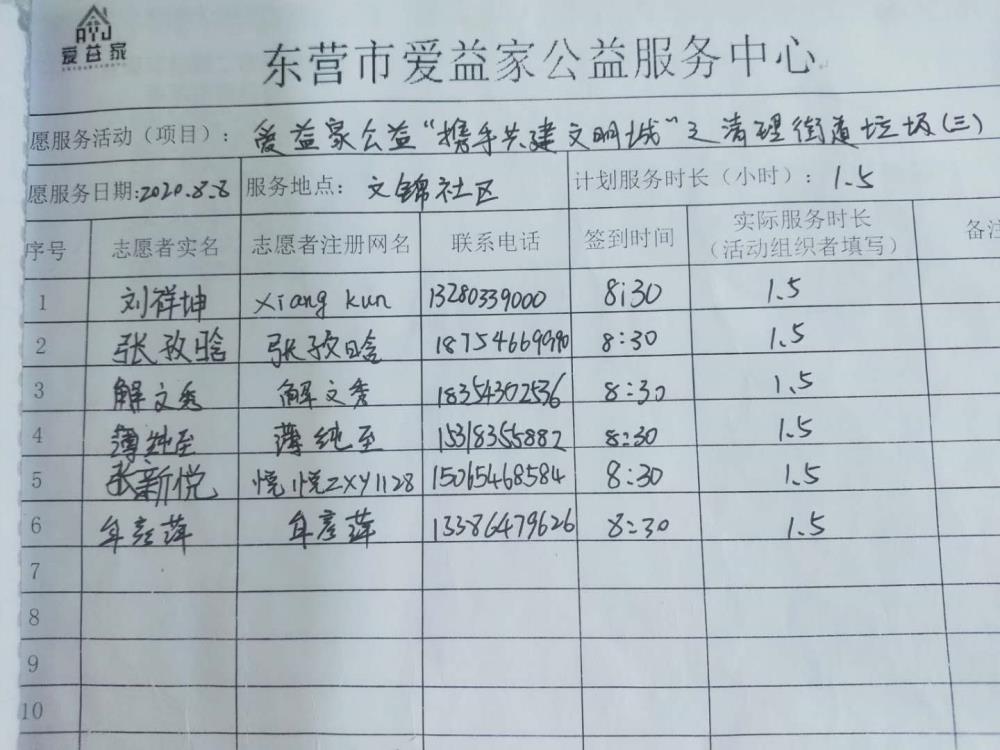 爱益家
东营市爱益家公益服务中心
愿服务活动（项目）：爱益家公益“携手共建文明城”之清理街道垃圾(三)
愿服务日期:2020.8.8 服务地点：文锦社区 计划服务时长（小时）：1.5
序号 志愿者实名 志愿者注册网名 联系电话 签到时间 实际服务时长（活动组织者填写） 备注
1 刘祥坤 xiang kun 13280339000 8:30 1.5
2 张孜晗 张孜晗 8:30 1.5
3 解文秀 解文秀 18354302536 8:30 1.5
4 薄纯至 薄纯至 15318355882 8:30 1.5
5 张新悦 悦悦ZXY1128 15065468584 8:30 1.5
6 牟彦萍 牟彦萍 13386479626 8:30 1.5
7
8
9
10